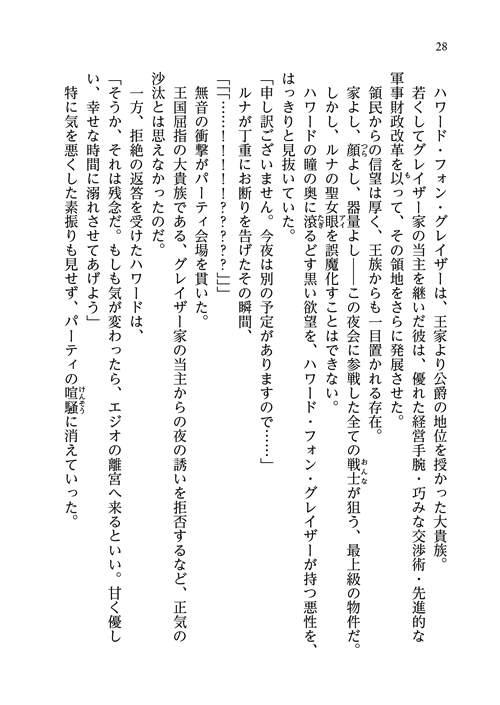 28
ハワード・フォン・グレイザーは、王家より公爵の地位を授かった大貴族。
若くしてグレイザー家の当主を継いだ彼は、優れた経営手腕・巧みな交渉術・先進的な
軍事財政改革を以って、その領地をさらに発展させた。
領民からの信望は厚く、王族からも一目置かれる存在。
家よし、顔よし、器量よし――この夜会に参戦した全ての戦士が狙う、最上級の物件だ。
しかし、ルナの聖女眼を誤魔化すことはできない。
ハワードの瞳の奥に滾るどす黒い欲望を、ハワード・フォン・グレイザーが持つ悪性を、
はっきりと見抜いていた。
「申し訳ございません。今夜は別の予定がありますので……」
ルナが丁重にお断りを告げたその瞬間、
「「「……！！！！！？？？？？」」」
無音の衝撃がパーティ会場を貫いた。
王国屈指の大貴族である、グレイザー家の当主からの夜の誘いを拒否するなど、正気の
沙汰とは思えなかったのだ。
一方、拒絶の返答を受けたハワードは、
「そうか、それは残念だ。もしも気が変わったら、エジオの離宮へ来るといい。甘く優し
い、幸せな時間に溺れさせてあげよう」
特に気を悪くした素振りも見せず、パーティの喧騒に消えていった。